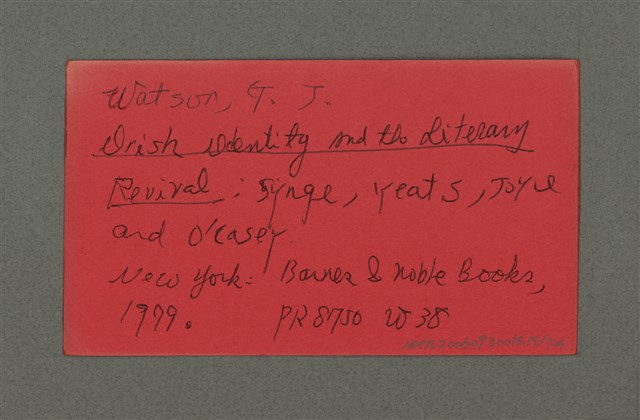 Watson, G. J.
Irish Identity and the Literary
Revival : Synge, Yeats, Joyce
and O'Casey
New York: Barnes & Noble Books,
1979. PR8750 W38